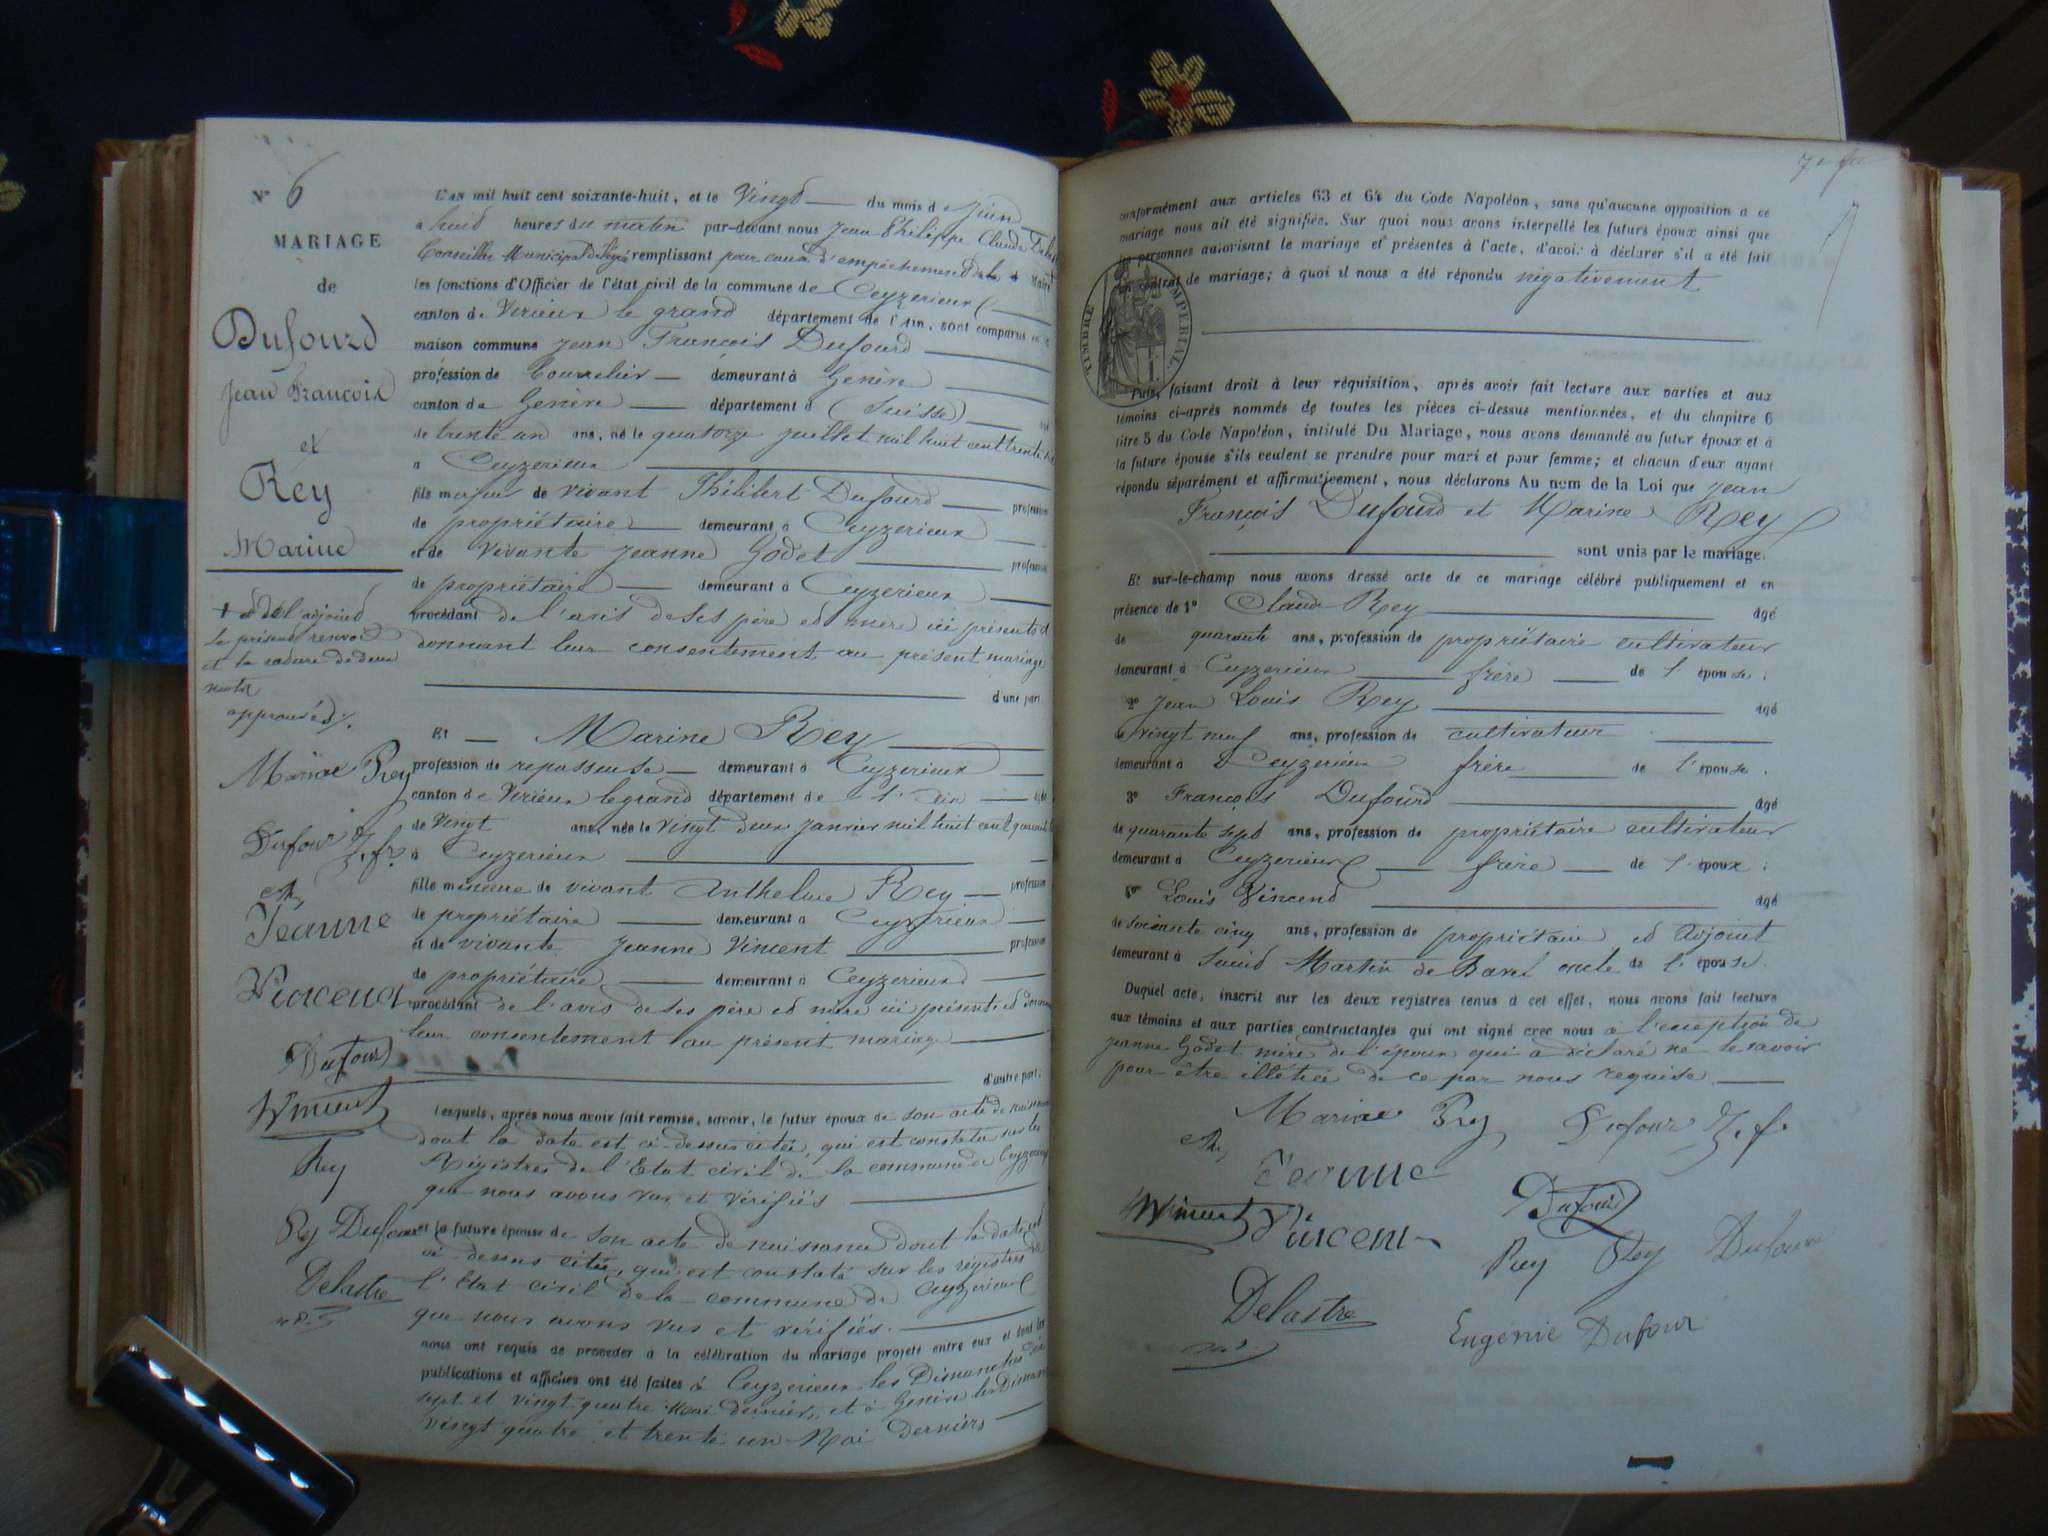 N° 6
MARIAGE
de
Dufourd
Jean François
et
Rey
Marine
et de l'adjoint
le présent renvoi
et la rature de deux
mots
approuvés
Marine Rey
Dufour J. f.
Jeanne
Vincent
Dufour
Vincent
Rey
Rey Dufour
Delastre
L'an mil huit cent soixante-huit, et le Vingt du mois de Juin
à huit heures du matin par-devant nous Jean Philippe Claude
Conseiller Municipal remplissant pour cause d'empêchement de Maire
les fonctions d'Officier de l'état civil de la commune de Ceyzerieux
canton de Virieux le grand département de l'Ain, sont comparus en la
maison commune Jean François Dufourd
profession de demeurant à Genève
canton de Genève département d (Suisse)
de trente un ans, né le quatorze juillet mil huit cent trente
à Ceyzerieux
fils majeur de vivant Philibert Dufourd profession
de propriétaire demeurant à Ceyzerieux
et de vivante Jeanne Godet profession
de propriétaire demeurant à Ceyzerieux
procédant de l'avis de ses père et mère ici présents et
donnant leur consentement au présent mariage
d'une part
Et Marine Rey
profession de repasseuse demeurant à Ceyzerieux
canton de Virieux le grand département de l'Ain âgée
de vingt ans, née le vingt deux janvier mil huit cent quarante
à Ceyzerieux
fille mineure de vivant Anthelme Rey profession
de propriétaire demeurant à Ceyzerieux
et de vivante Jeanne Vincent profession
de propriétaire demeurant à Ceyzerieux
procédant de l'avis de ses père et mère ici présents et donnant
leur consentement au présent mariage
d'autre part.
lesquels, après nous avoir fait remise, savoir, le futur époux de son acte de naissance
dont la date est ci-dessus citée, qui est constaté sur les
Régistres de l'Etat civil de la commune de Ceyzerieux
que nous avons vus et vérifiés
et la future épouse de son acte de naissance dont la date est
ci-dessus citée, qui est constaté sur les régistres de
l'Etat civil de la commune de Ceyzerieux
que nous avons vus et vérifiés.
nous ont requis de procéder à la célébration du mariage projeté entre eux et dont les
publications et affiches ont été faites à Ceyzerieux les Dimanches dix
sept et vingt quatre Mai dernier, et à Genève les Dimanches
vingt quatre et trente un Mai derniers
conformément aux articles 63 et 64 du Code Napoléon, sans qu'aucune opposition à ce
mariage nous ait été signifiée. Sur quoi nous avons interpellé les futurs époux ainsi que
les personnes autorisant le mariage et présentes à l'acte, d'avoir à déclarer s'il a été fait
un contrat de mariage; à quoi il nous a été répondu négativement
TIMBRE IMPERIAL
1 F.
Puis, faisant droit à leur réquisition, après avoir fait lecture aux parties et aux
témoins ci-après nommés de toutes les pièces ci-dessus mentionnées, et du chapitre 6
titre 5 du Code Napoléon, intitulé Du Mariage, nous avons demandé au futur époux et à
la future épouse s'ils veulent se prendre pour mari et pour femme; et chacun d'eux ayant
répondu séparément et affirmativement, nous déclarons Au nom de la Loi que Jean
François Dufourd et Marine Rey
sont unis par le mariage.
Et sur-le-champ nous avons dressé acte de ce mariage célébré publiquement et en
présence de 1° Claude Rey âgé
de quarante ans, profession de propriétaire cultivateur
demeurant à Ceyzerieux frère de l'épouse;
2° Jean Louis Rey âgé
de vingt neuf ans, profession de cultivateur
demeurant à Ceyzerieux frère de l'épouse.
3° François Dufourd âgé
de quarante sept ans, profession de propriétaire cultivateur
demeurant à Ceyzerieux frère de l'époux;
4° Louis Vincend âgé
de soixante cinq ans, profession de propriétaire et adjoint
demeurant à Saint Martin de Bavel oncle de l'épouse.
Duquel acte, inscrit sur les deux registres tenus à cet effet, nous avons fait lecture
aux témoins et aux parties contractantes qui ont signé avec nous à l'exception de
Jeanne Godet mère de l'époux qui a déclaré ne le savoir
pour être illétrée de ce par nous requise.
Marine Rey Dufour J. f.
Jeanne
Vincent Vincent Dufour
Rey Rey Dufour
Delastre
Eugénie Dufour